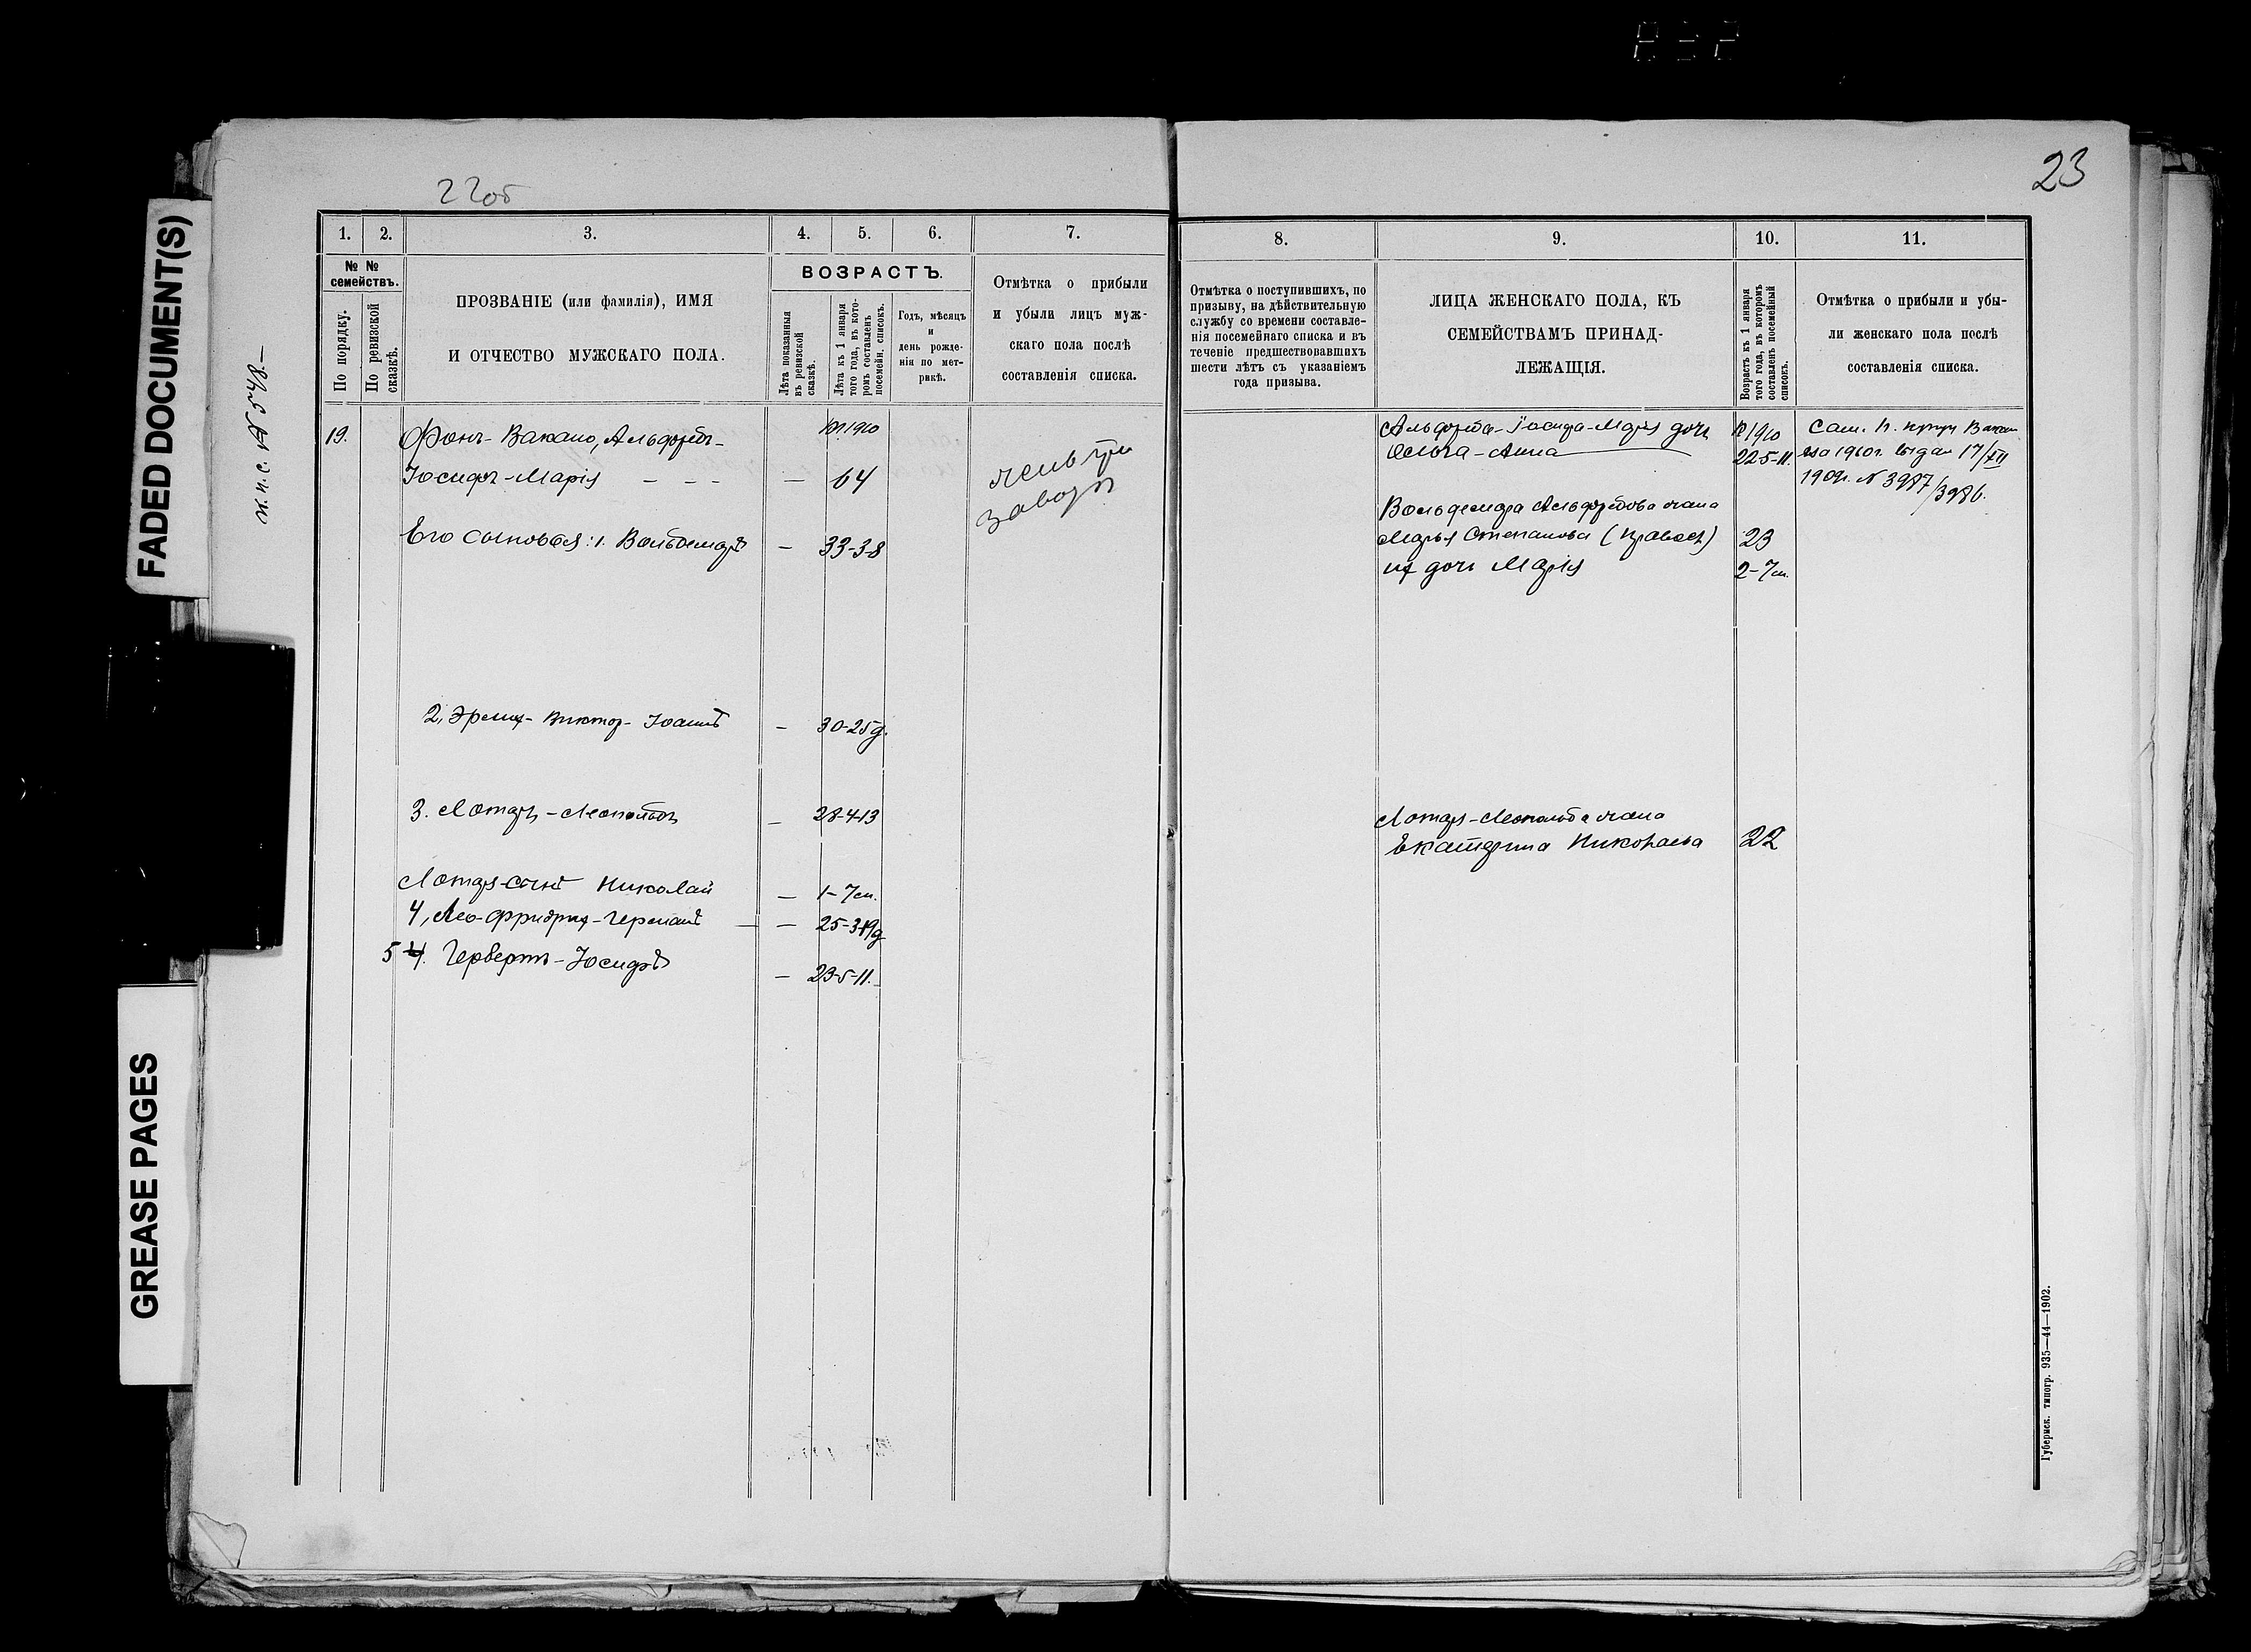 23
22об
FADED DOCUMENT(S)
GREASE PAGES
м.п.с. № 548–
1.
2.
3.
4.
5.
6.
7.
№ №
семействъ.
По порядку.
По ревизской
сказкѣ.
ПРОЗВАНІЕ (или фамилія), ИМЯ
И ОТЧЕСТВО МУЖСКАГО ПОЛА.
ВОЗРАСТЪ.
Лѣта показанныя
въ ревизской
сказкѣ.
Лѣта къ 1 января
того года, въ кото-
ромъ составленъ
посемейн. списокъ.
Годъ, мѣсяцъ
и
день рожде-
нія по мет-
рикѣ.
Отмѣтка о прибыли
и убыли лицъ муж-
скаго пола послѣ
составленія списка.
19.
Фонъ-Вакано, Альфредъ-
1910
Іосифъ-Марія – – –
– 64
Его сыновья: 1. Вольдемаръ
– 33-3-8
2, Эрихъ-Викторъ-Іоаннъ
– 30-25д.
3. Лотаръ-Леопольдъ
– 28-4-13
Лотара сынъ Николай
– 1-7м.
4, Лео-Фридрихъ-Германъ
– 25-3-19д
5 4. Гербертъ-Іосифъ
– 23-5-11.
8.
9.
10.
11.
Отмѣтка о поступившихъ, по
призыву, на дѣйствительную
службу со времени составле-
нія посемейнаго списка и въ
теченіе предшествовавшихъ
шести лѣтъ съ указаніемъ
года призыва.
ЛИЦА ЖЕНСКАГО ПОЛА, КЪ
СЕМЕЙСТВАМЪ ПРИНАД-
ЛЕЖАЩІЯ.
Возрастъ къ 1 января
того года, въ которомъ
составленъ посемейный
списокъ.
Отмѣтка о прибыли и убы-
ли женскаго пола послѣ
составленія списка.
Альфреда-Іосифа-Марія дочь
Ольга-Анна
1910
22-5-11.
Вольдемара Альфредова жена
Марья Степанова (правосл)
23
их дочь Марія
2-7м.
Лотара-Леопольда жена
Екатерина Николаева
22
Сам. п. купц Вакан
на 1910г. выдан 17/XII
1909г. № 3987/3986.
Губернск. типогр. 935—44—1902.